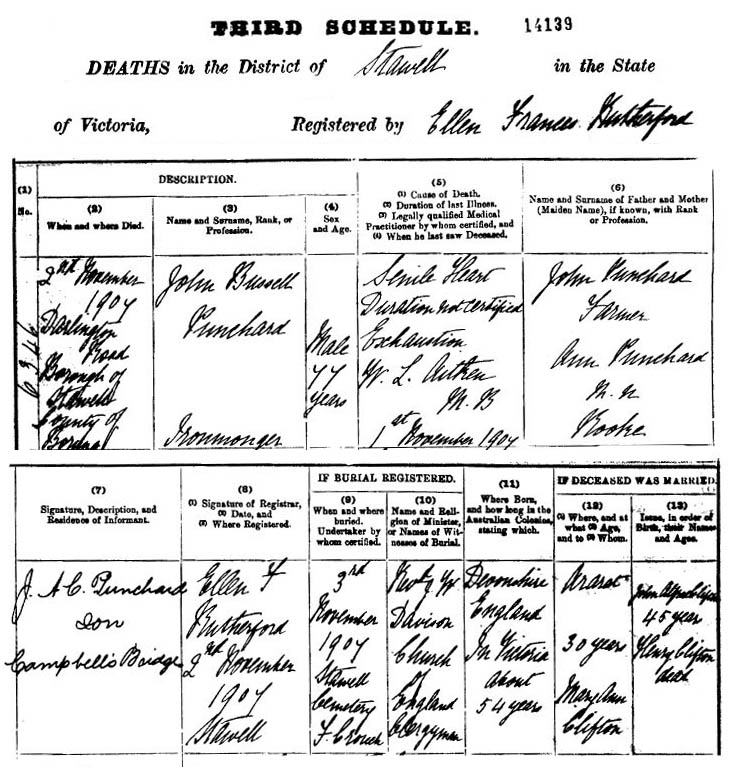 THIRD SCHEDULE.
14139
DEATHS in the District of Stawell in the State
of Victoria, Registered by Ellen Frances Rutherford
(1)
No.
DESCRIPTION.
(2)
When and where Died.
(3)
Name and Surname, Rank, or
Profession.
(4)
Sex
and Age.
(5)
(1) Cause of Death.
(2) Duration of last Illness.
(3) Legally qualified Medical
Practitioner by whom certified, and
(4) When he last saw Deceased.
(6)
Name and Surname of Father and Mother
(Maiden Name), if known, with Rank
or Profession.
6346
2nd November
1907
Darlington
Road
Borough of
Stawell
County of
Borung
John Bussell
Punchard
Ironmonger
Male
77
years
Senile Heart
Duration not certified
Exhaustion
W. L. Aitken
M. B
1st November 1907
John Punchard
Farmer
Ann Punchard
m. n
Rooke
(7)
Signature, Description, and
Residence of Informant.
(8)
(1) Signature of Registrar,
(2) Date, and
(3) Where Registered.
IF BURIAL REGISTERED.
(9)
When and where
buried.
Undertaker by
whom certified.
(10)
Name and Reli-
gion of Minister,
or Names of Wit-
nesses of Burial.
(11)
Where Born,
and how long in the
Australian Colonies,
stating which.
IF DECEASED WAS MARRIED.
(12)
(1) Where, and at
what (2) Age,
and to (3) Whom.
(13)
Issue, in order of
Birth, their Names
and Ages.
J. A. C. Punchard
Son
Campbell's Bridge
Ellen F
Rutherford
2nd November
1907
Stawell
3rd
November
1907
Stawell
Cemetery
F. Crouch
Davison
Church
of
England
Clergyman
Devonshire
England
In Victoria
about
54 years
Ararat
30 years
Mary Ann
Clifton
John Alfred Clifton
45 years
Henry Clifton
dead